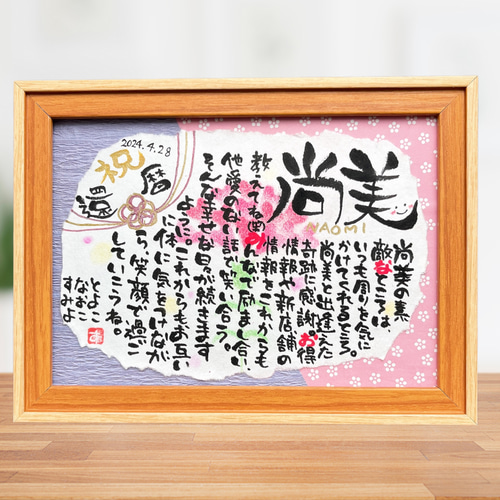 2024.4.28
祝
還暦
尚美
NAOMI
尚美の素
敵なところは、
いつも周りを気に
かけてくれるところ。
尚美と出逢えた
奇跡に感謝。お得
情報や新店舗の
情報をこれからも
教えてね(笑)みんなで励まし合い、
他愛のない話で笑い合う。
そんな幸せな日々が続きます
ように。これからもお互い
に体に気をつけなが
ら、笑顔で過ご
していこうね。
とよこ
なおこ
すみよ